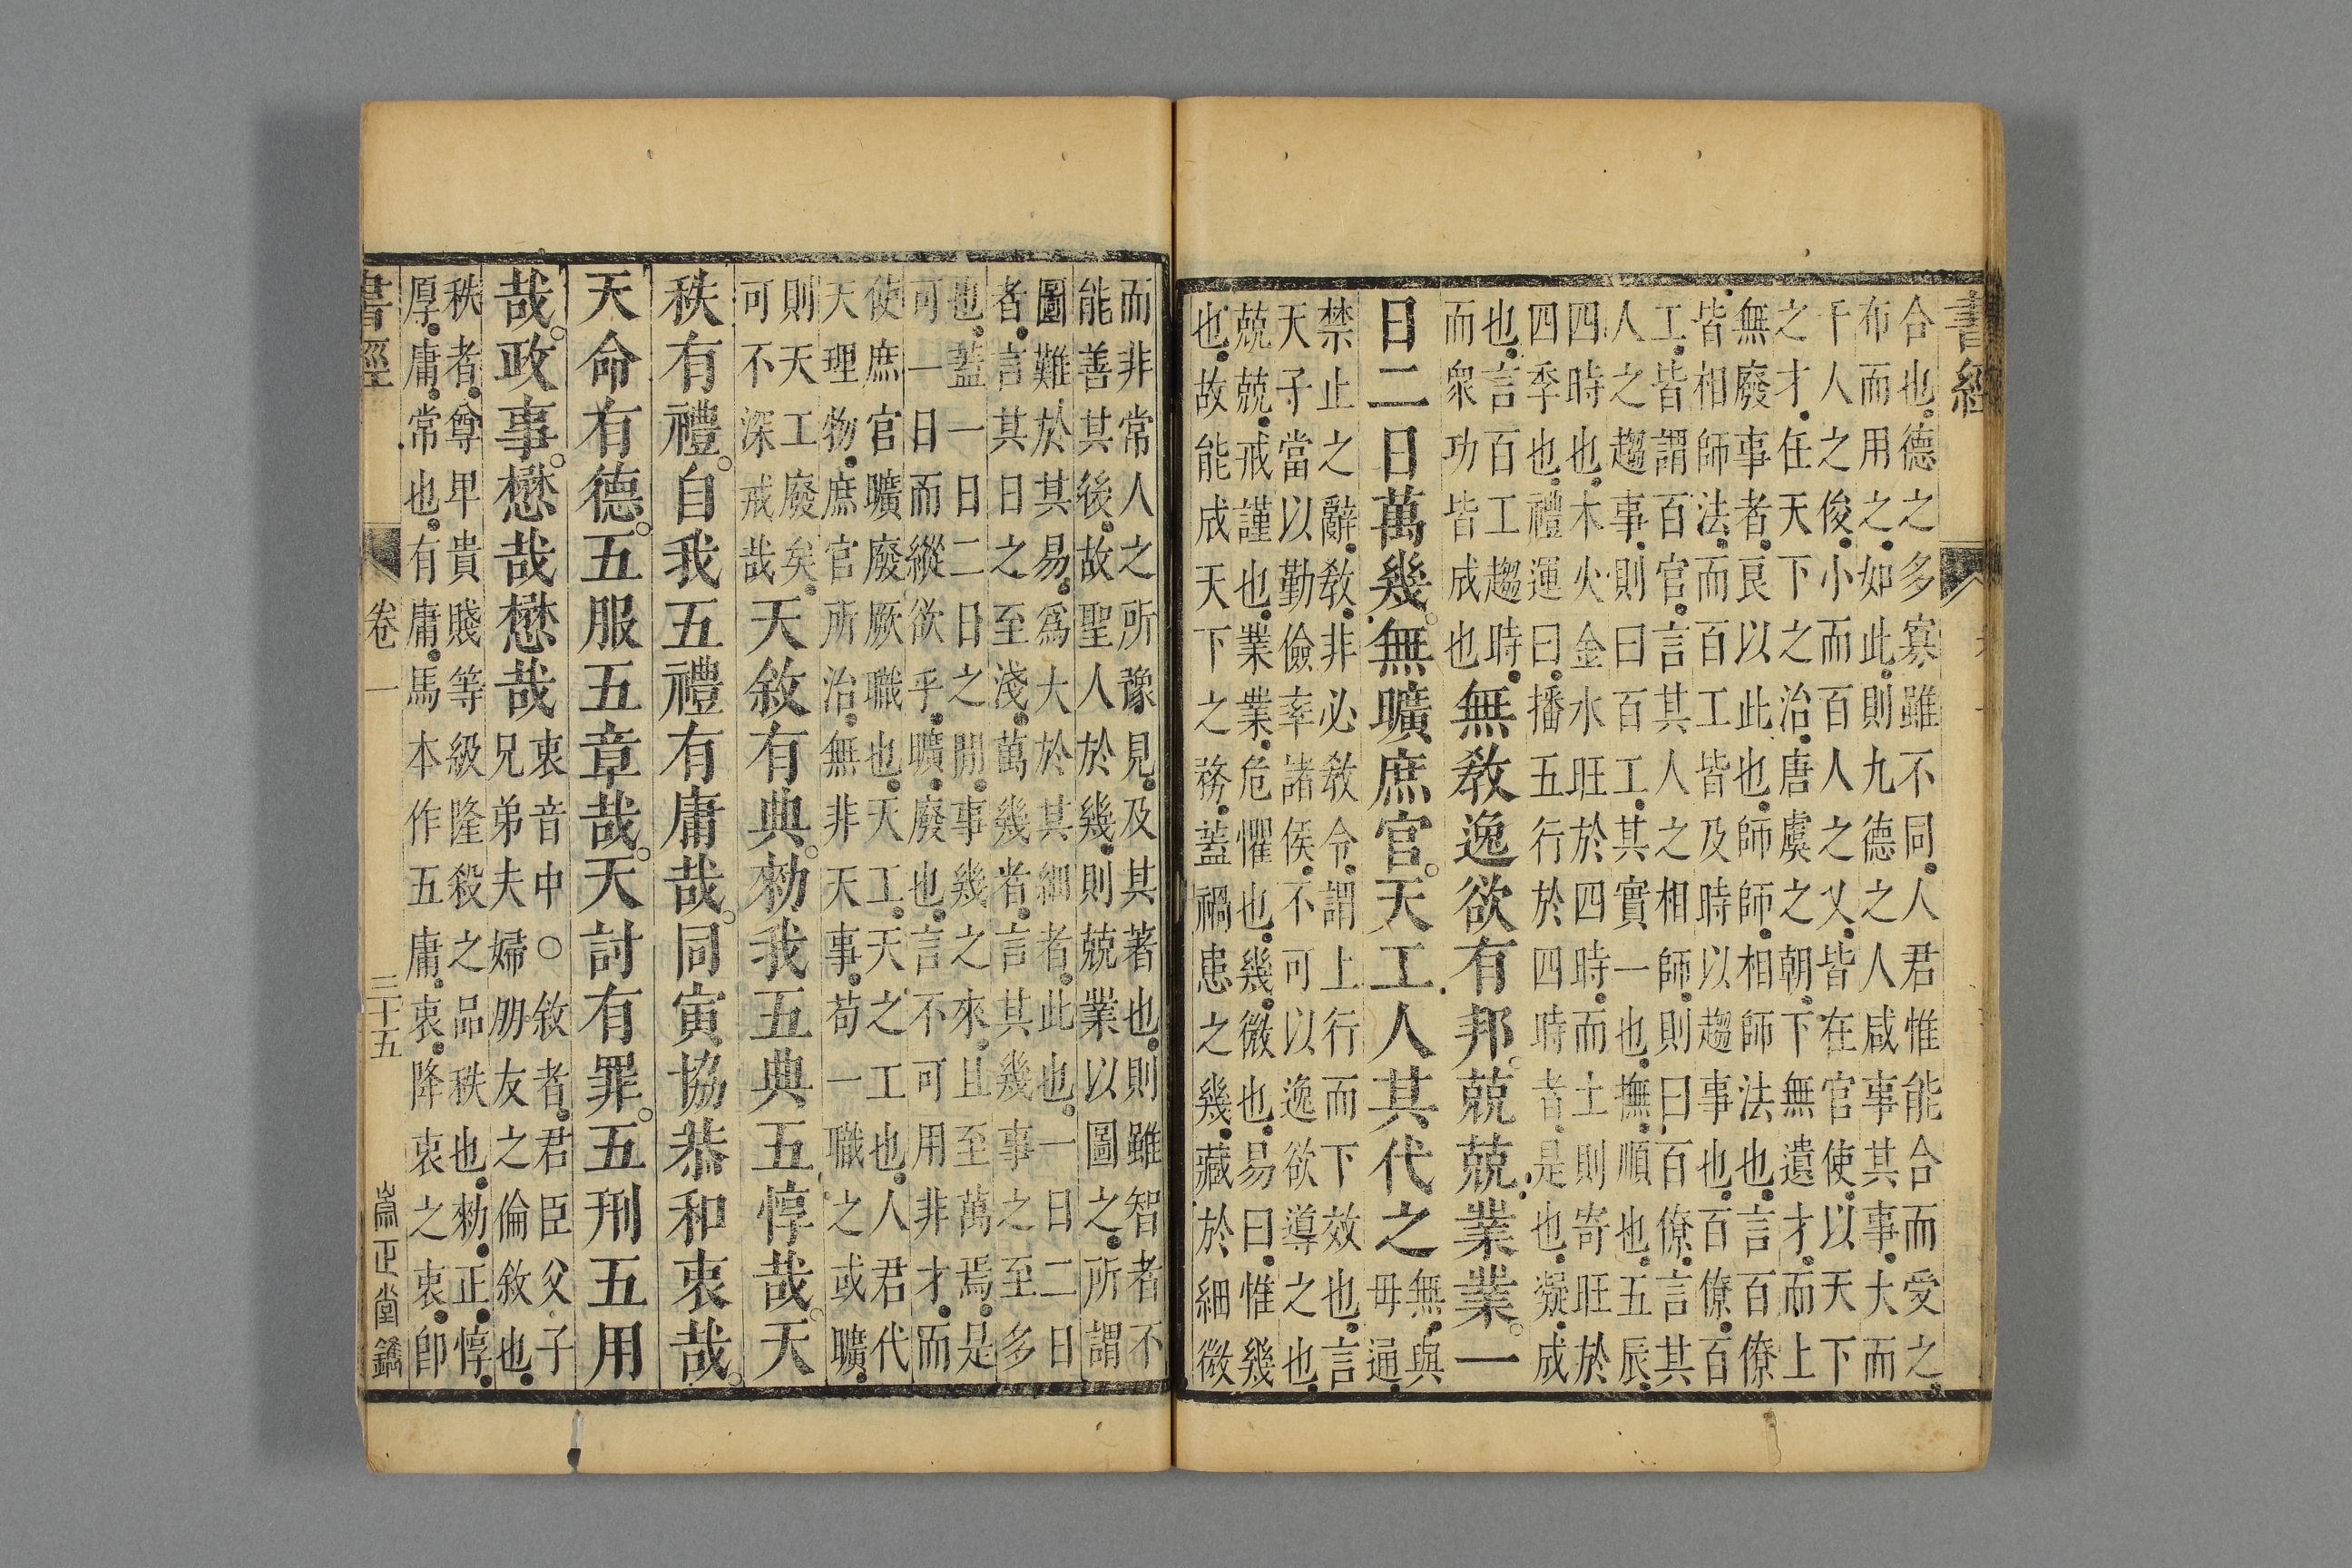 書經
合也德之多寡雖不同人君惟能合而受之
布而用之如此則九德之人咸事其事大而
千人之俊小而百人之乂皆在官使以天下
之才任天下之治唐虞之朝下無遺才而上
無廢事者良以此也師師相師法也言百僚
皆相師法而百工皆及時以趨事也百僚百
工皆謂百官言其人之相師則曰百僚言其
人之趨事則曰百工其實一也撫順也五辰
四時也木火金水旺於四時而土則寄旺於
四季也禮運曰播五行於四時者是也凝成
也言百工趨時
而衆功皆成也
無敎逸欲有邦兢兢業業一
日二日萬幾無曠庶官天工人其代之
無與
毋通
禁止之辭敎非必敎令謂上行而下效也言
天子當以勤儉率諸侯不可以逸欲導之也
兢兢戒謹也業業危懼也幾微也易曰惟幾
也故能成天下之務蓋禍患之幾藏於細微
而非常人之所豫見及其著也則雖智者不
能善其後故聖人於幾則兢業以圖之所謂
圖難於其易爲大於其細者此也一日二日
者言其日之至淺萬幾者言其幾事之至多
也蓋一日二日之間事幾之來且至萬焉是
可一日而縱欲乎曠廢也言不可用非才而
使庶官曠廢厥職也天工天之工也人君代
天理物庶官所治無非天事苟一職之或曠
則天工廢矣
可不深戒哉
天敘有典勑我五典五惇哉天
秩有禮自我五禮有庸哉同寅協恭和衷哉
天命有德五服五章哉天討有罪五刑五用
哉政事懋哉懋哉
衷音中○敘者君臣父子
兄弟夫婦朋友之倫敘也
秩者尊卑貴賤等級隆殺之品秩也勑正惇
厚庸常也有庸馬本作五庸衷降衷之衷卽
書經 卷一 三十五 崇正堂鐫